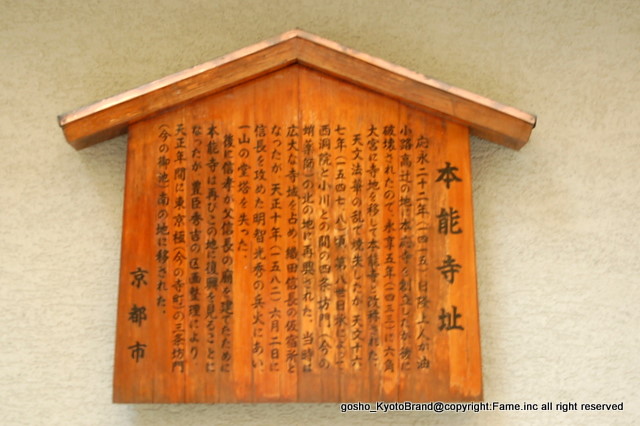 本能寺址
応永二十二年(一四一五)日隆上人が油
小路高辻の地に本応寺を創立したが後に
破壊されたので、永享五年(一四三三)に六角
大宮に寺地を移して本能寺と改称された。
天文法華の乱で焼失したが、天文十六
七年(一五四七、八)頃、第八世日承によって
西洞院と小川との間の四条坊門(今の
蛸薬師)の北の地に再興された。当時は
広大な寺域を占め、織田信長の仮宿所と
なったが、天正十年(一五八二)六月二日に
信長を攻めた明智光秀の兵火にあい、
一山の堂塔を失った。
後に信孝が父信長の廟を建てたために
本能寺は再びこの地に復興を見ることに
なったが、豊臣秀吉の区画整理により
天正年間に東京極(今の寺町)の三条坊門
(今の御池)南の地に移された。
京都市
gosho_KyotoBrand@copyright:Fame.inc all right reserved